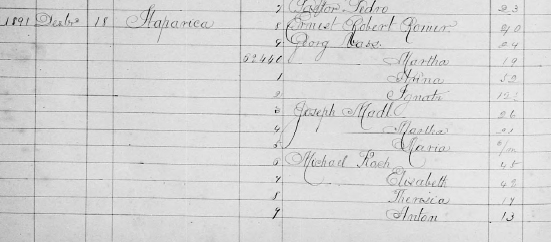 7 Pedro 23
1891 Dezbr 18 Itaparica 8 Ernest Robert Romer 40
9 Georg 24
52440 Martha 19
1 Anna 52
2 Ignatz
3 Joseph Madl 26
4 Martha 21
5 Maria
6 Michael Koch 45
7 Elisabeth 42
8 Theresia 17
9 Anton 13